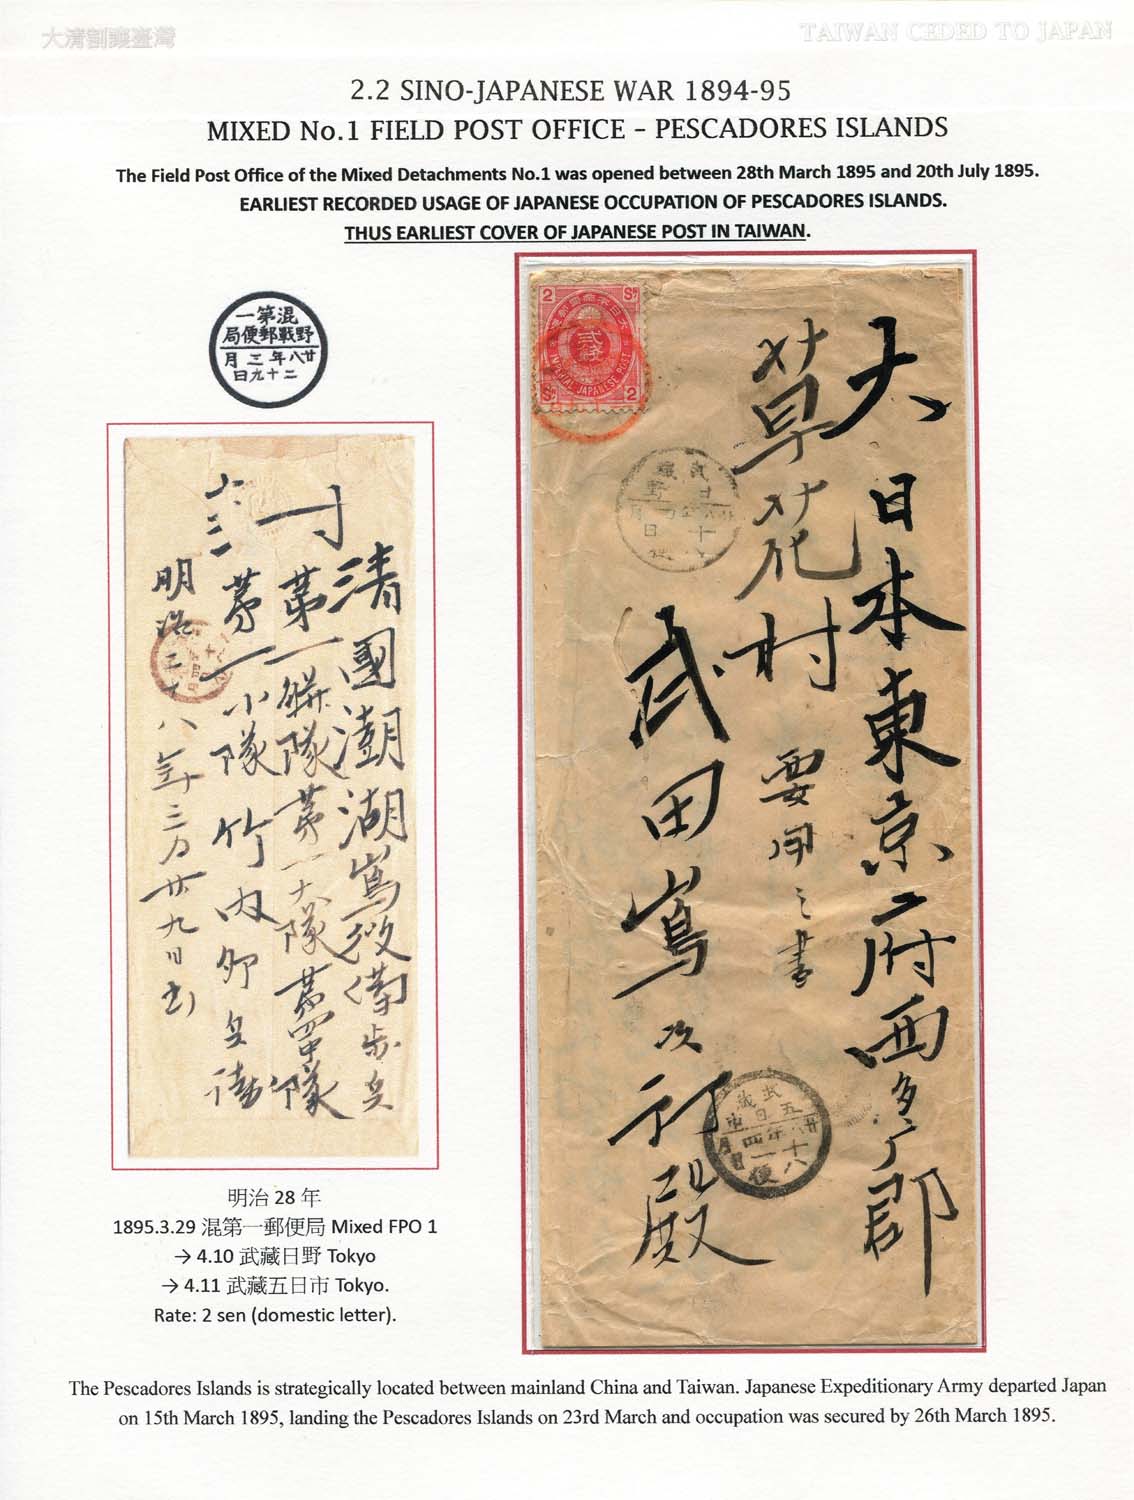 大清割讓臺灣
TAIWAN CEDED TO JAPAN
2.2 SINO-JAPANESE WAR 1894-95
MIXED No.1 FIELD POST OFFICE – PESCADORES ISLANDS
The Field Post Office of the Mixed Detachments No.1 was opened between 28th March 1895 and 20th July 1895.
EARLIEST RECORDED USAGE OF JAPANESE OCCUPATION OF PESCADORES ISLANDS.
THUS EARLIEST COVER OF JAPANESE POST IN TAIWAN.
混第一
野戰郵便局
廿八年三月
二十九日
清國澎湖嶌後備歩兵
第一聯隊第一大隊第四中隊
第一小隊竹内
明治二十八年三月廿九日
2 Sɴ
貳錢
IMPERIAL JAPANESE POST
Sɴ 2
大日本東京府西多摩郡
草花村
要用之書
武田嶌次郎殿
武藏
五日市
廿八年四月
十一日
便
明治 28 年
1895.3.29 混第一郵便局 Mixed FPO 1
→ 4.10 武藏日野 Tokyo
→ 4.11 武藏五日市 Tokyo.
Rate: 2 sen (domestic letter).
The Pescadores Islands is strategically located between mainland China and Taiwan. Japanese Expeditionary Army departed Japan
on 15th March 1895, landing the Pescadores Islands on 23rd March and occupation was secured by 26th March 1895.